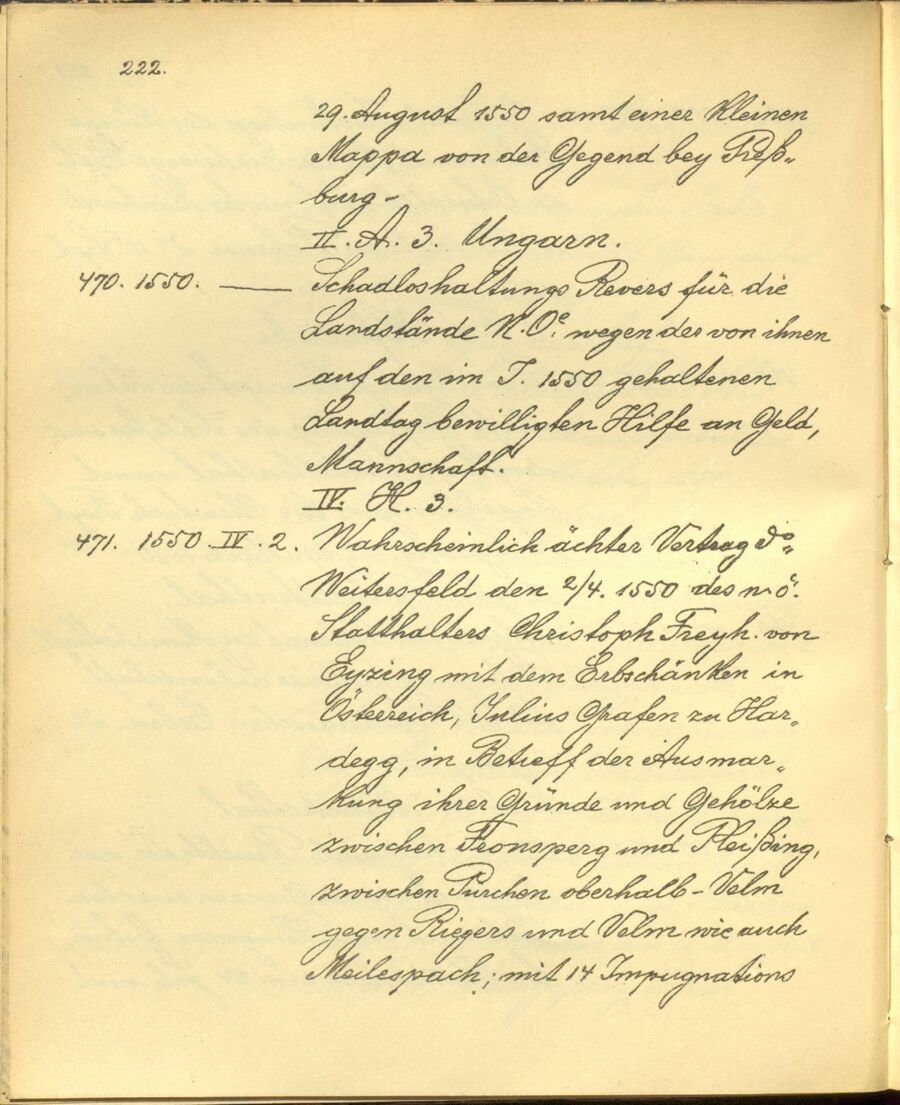 222.
29. August 1550 samt einer kleinen
Mappa von der Gegend bey Preß„
burg -
II. A. 3. Ungarn.
470. 1550. — Schadloshaltungs Revers für die
Landstände N. Oe. wegen der von ihnen
auf den im J. 1550 gehaltenen
Landtag bewilligten Hilfe an Geld,
Mannschaft.
IV. H. 3.
471. 1550. IV. 2. Wahrscheinlich ächter Vertrag do„
Weitersfeld den 2/4. 1550 des n. ö.
Statthalters Christoph Freyh. von
Eyzing mit dem Erbschänken in
Österreich, Julius Grafen zu Har„
degg, in Betreff der Ausmar„
kung ihrer Gründe und Gehölze
zwischen Fronsperg und Pleißing,
zwischen Purchen oberhalb - Velm
gegen Riegers und Velm wie auch
Meilespach; mit 14 Impugnations